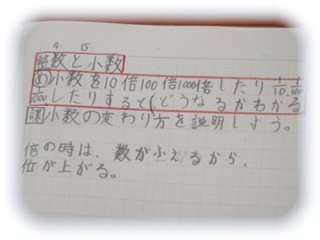 4 15
整数と小数
め 小数を10倍100倍1000倍したり 1/10 1/100
1/1000 したりすると、どうなるかわかる
課 小数の変わり方を説明しよう。
倍の時は、数がふえるから、
位が上がる。